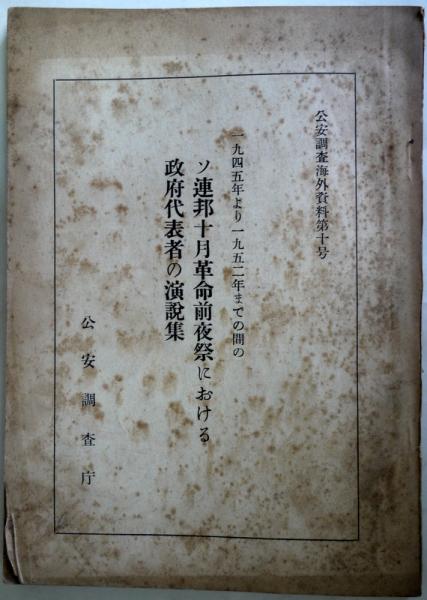 公安調査海外資料第十号
一九四五年より一九五二年までの間の
ソ連邦十月革命前夜祭における
政府代表者の演説集
公安調査庁